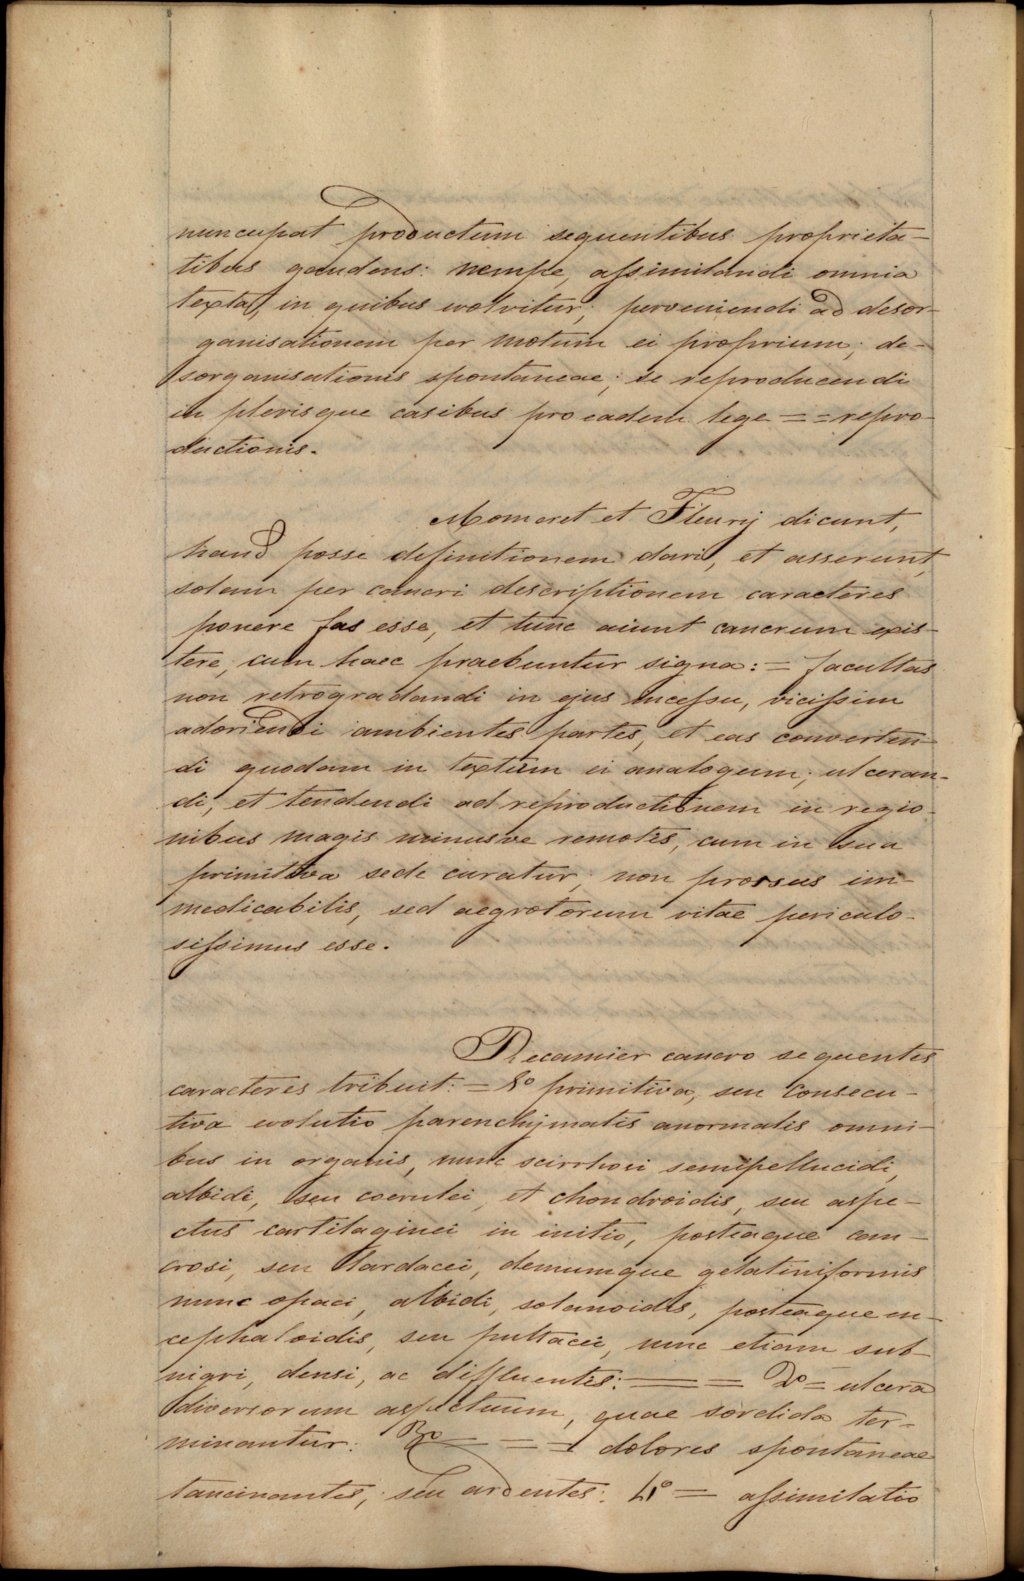 nuncupat productum sequentibus proprieta-
tibus gaudens: nempe, assimilandi omnia
texta, in quibus evolvitur; perveniendi ad desor-
ganisationem per motum ei proprium; de-
sorganisationis spontaneae; se reproducendi
in plerisque casibus pro eadem lege = = repro-
ductionis.
Momeret et Fleurij dicunt,
haud posse definitionem dari, et asserunt,
solam per cancri descriptionem caracteres
ponere fas esse, et tunc aiunt cancrum exis-
tere, cum haec praebuntur signa: = facultas
non retrogradandi in ejus incessu, vicissim
adoriendi ambientes partes, et eas converten-
di quodam in textum ei analogum; ulceran-
di, et tendendi ad reproductionem in regio-
nibus magis minusve remotes, cum in sua
primitiva sede curatur; non prorsus im-
medicabilis, sed aegrotorum vitae periculo-
sissimus esse.
Recamier cancro sequentes
caracteres tribuit: = 1º primitiva, seu consecu-
tiva evolutio parenchijmatis anormalis omni-
bus in organis, nunc scirrhosi semipellucidi,
albidi, seu coerulei, et chondroidis, seu aspe-
ctus cartilaginei in initio, posteaque can-
crosi, seu lardacei, demumque gelatiniformis
nunc opaci, albidi, solanoidis, posteaque en-
cephaloidis, seu pultacei, nunc etiam sub-
nigri, densi, ac diffluentis: = = 2º = ulcera
diversorum aspectuum, quae sordida ter-
minantur: 3º = = = dolores spontaneae
lancinantes, seu ardentes: 4º = assimilatio